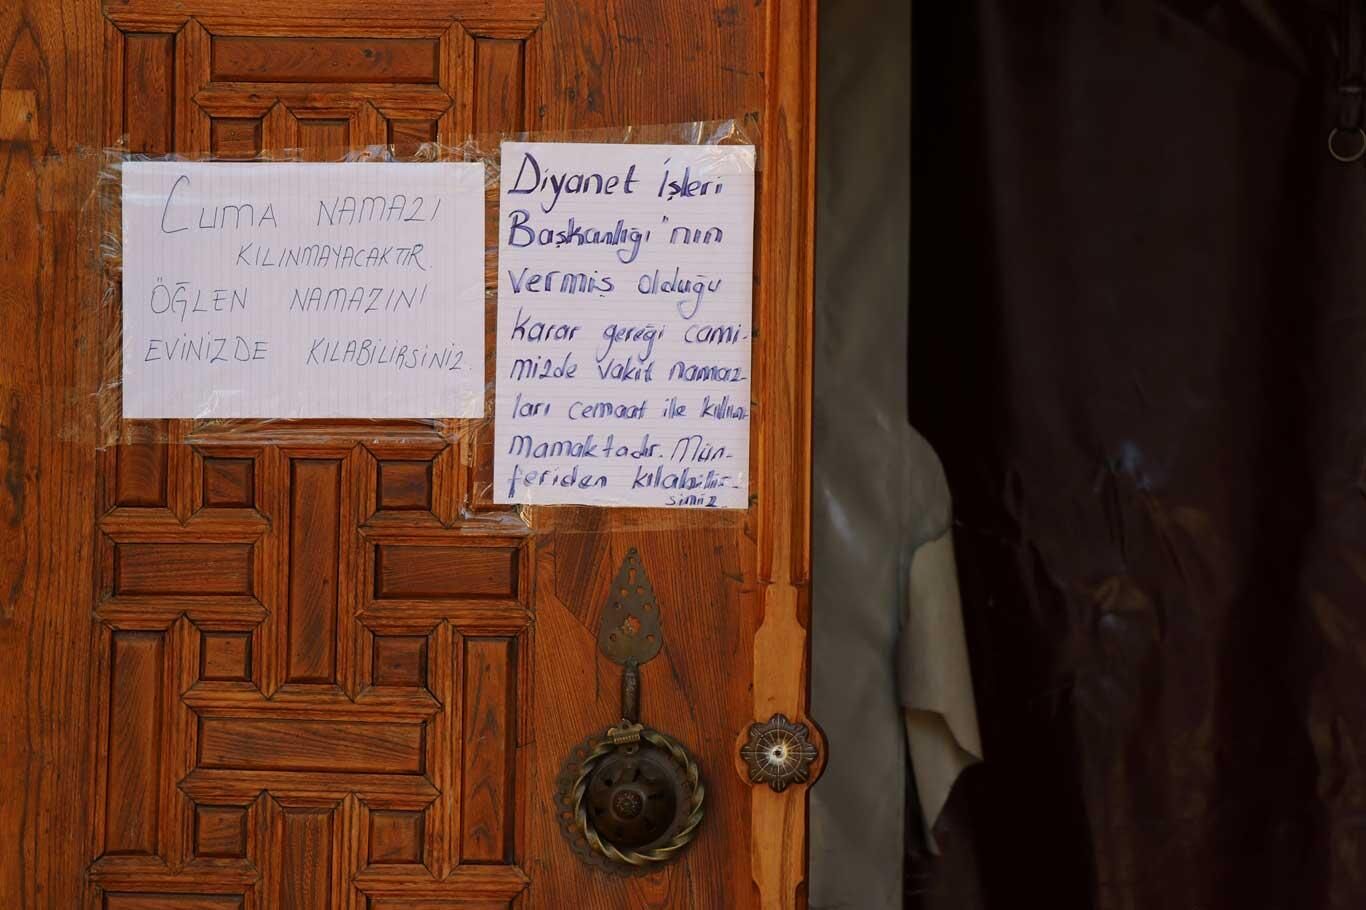 CUMA NAMAZI
KILINMAYACAKTIR.
ÖĞLEN NAMAZINI
EVİNİZDE KILABİLİRSİNİZ.
Diyanet İşleri
Başkanlığı'nın
vermiş olduğu
karar gereği cami-
mizde vakit namaz-
ları cemaat ile kılın-
mamaktadır. Mün-
feriden kılabilir-
siniz.